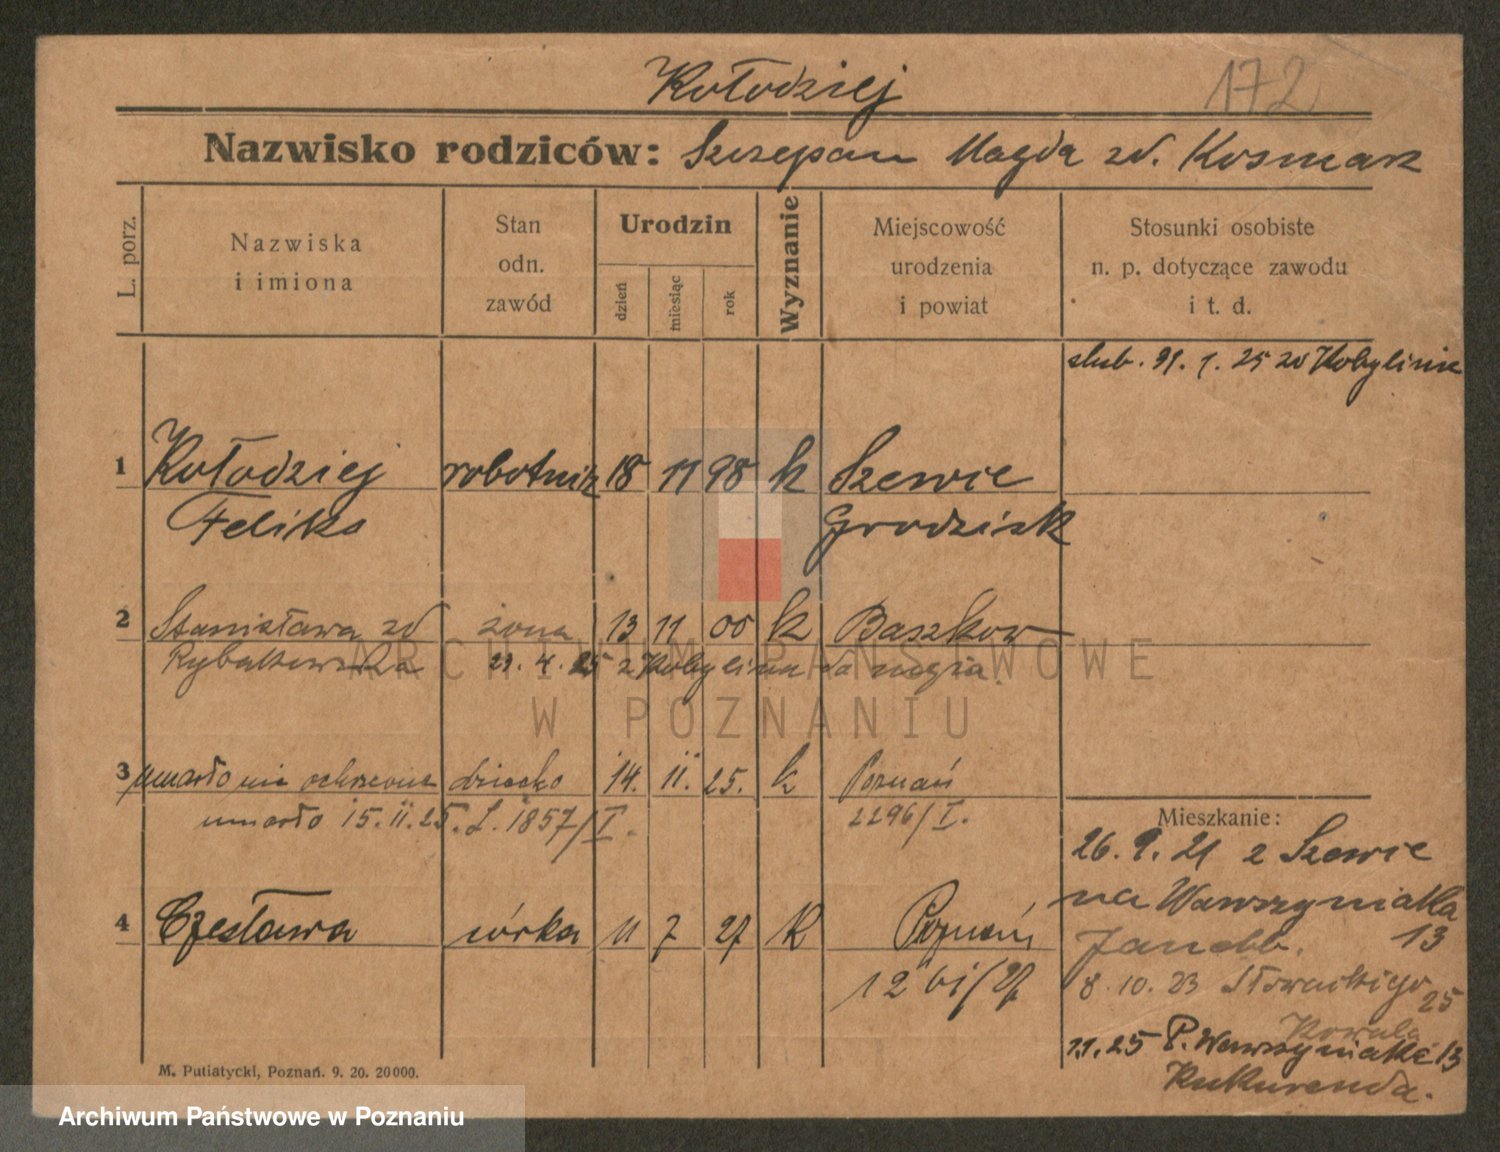 Kołodziej
172
Nazwisko rodziców: Szczepan Magda zd. Kosmarz
L. porz.
Nazwiska i imiona
Stan odn. zawód
Urodzin
dzień
miesiąc
rok
Wyznanie
Miejscowość urodzenia i powiat
Stosunki osobiste n. p. dotyczące zawodu i t. d.
ślub. 31. 1. 25 w Kobylinie
1 Kołodziej robotnik 18 11 98 k Szewie
Feliks Grodzisk
2 Stanisława zd żona 13 11 00 k Baszkow
Rybakowska 29. 4. 25 z Kobylina do męża.
ARCHIWUM PAŃSTWOWE
W POZNANIU
3 umarło nie ochrzcone dziecko 14. 11. 25. k Poznań
umarło 15. 11. 25. L. 1857/I. 2296/I.
Mieszkanie:
26. 9. 21 z Szewie
na Wawrzyniaka
13
4 Czesława córka 11 7 27 K Poznań
8. 10. 23 Słowackiego
25
Kowala
1.1. 25 P. Wawrzyniaka 13
Kukurenda.
M. Putiatycki, Poznań. 9. 20. 20000.
Archiwum Państwowe w Poznaniu